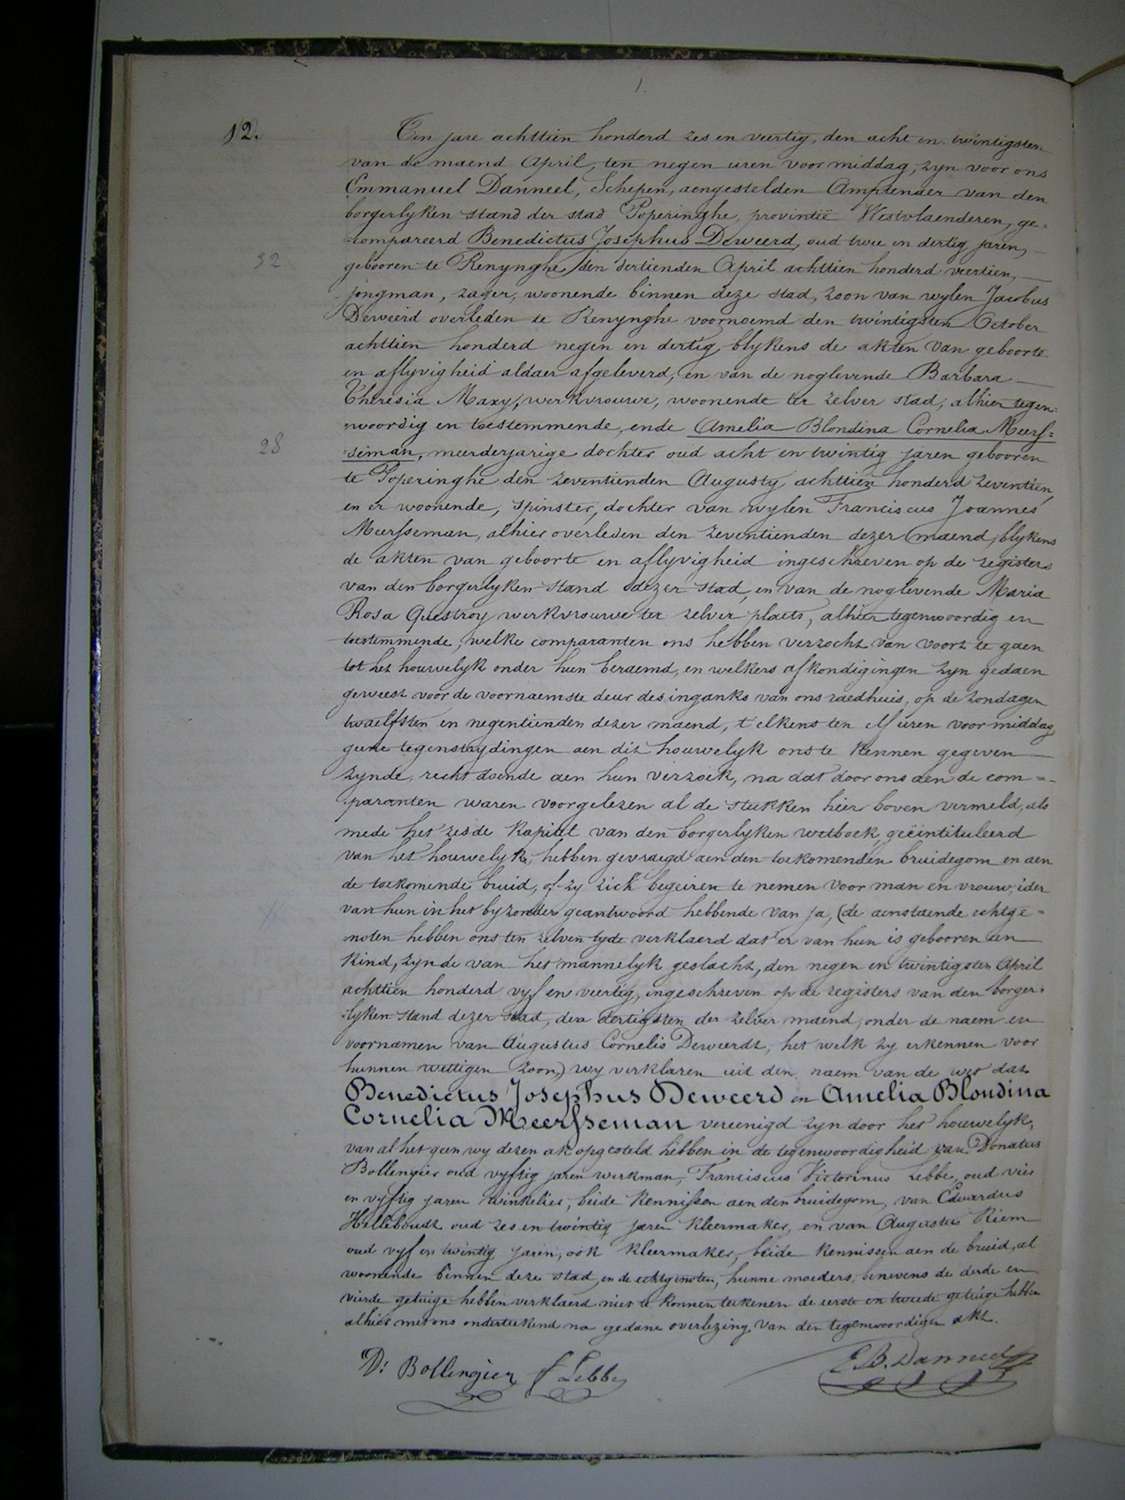 1.
12.
Ten jare achttien honderd zes en veertig, den acht en twintigsten
van de maend April, ten negen uren voormiddag, zyn voor ons
Emmanuel Danneel, Schepen, aengestelden Amptenaer van den
borgerlyken stand der stad Poperinghe, provintie Westvlaenderen, ge-
compareerd Benedictus Josephus Deweerd, oud twee en dertig jaren,
32
gebooren te Renynghe den dertienden April achttien honderd veertien,
jongman, zager, woonende binnen deze stad, zoon van wylen Jacobus
Deweerd overleden te Renynghe voornoemd den twintigsten October
achttien honderd negen en dertig, blykens de akten van geboorte
en aflyvigheid aldaer afgeleverd, en van de noglevende Barbara
Theresia Maxy, werkvrouwe, woonende ter zelver stad, alhier tegen-
woordig en toestemmende, ende Amelia Blondina Cornelia Meersse-
28
seman, meerderjarige dochter oud acht en twintig jaren gebooren
te Poperinghe den zeventienden Augusty achttien honderd zeventien
en er woonende, spinster, dochter van wylen Franciscus Joannes
Meersseman, alhier overleden den zeventienden dezer maend, blykens
de akten van geboorte en aflyvigheid ingeschreven op de registers
van den borgerlyken stand dezer stad, en van de noglevende Maria
Rosa Questroy werkvrouwe ter zelver plaets, alhier tegenwoordig en
toestemmende, welke comparanten ons hebben verzocht van voort te gaen
tot het houwelyk onder hun beraemd, en welkers afkondigingen zyn gedaen
geweest voor de voornaemste deur des ingangs van ons raedhuis, op de zondagen
twaelfsten en negentienden dezer maend, t'elkens ten elf uren voormiddag
geene tegenstrydingen aen dit houwelyk ons te kennen gegeven
zynde, recht doende aen hun verzoek, na dat door ons aen de com-
paranten waren voorgelezen al de stukken hier boven vermeld, als
mede het zesde kapittel van den borgerlyken wetboek, geëintituleerd
van het houwelyk, hebben gevraegd aen den toekomenden bruidegom en aen
de toekomende bruid, of zy zich begeiren te nemen voor man en vrouw, ider
van hun in het byzonder geantwoord hebbende van ja, (de aenstaende echtge-
noten hebben ons ten zelven tyde verklaerd dat er van hun is gebooren een
kind, zynde van het mannelyk geslacht, den negen en twintigsten April
achttien honderd vyf en veertig, ingeschreven op de registers van den borger-
lyken stand dezer stad, den dertigsten der zelver maend, onder de naem en
voornamen van Augustus Cornelis Deweerdt, het welk zy erkennen voor
hunnen wettigen zoon,) wy verklaren uit den naem van de wet dat
Benedictus Josephus Deweerd en Amelia Blondina
Cornelia Meersseman vereenigd zyn door het houwelyk,
van al het geen wy dezen akt opgesteld hebben in de tegenwoordigheid van Donatus
Bollengier oud vyftig jaren werkman, Franciscus Victorinus Lebbe, oud vier
en vyftig jaren winkelier, beide kennissen aen den bruidegom, van Eduardus
Hilleboudt oud zes en twintig jaren kleermaker, en van Augustus Riem
oud vyf en twintig jaren, ook kleermaker, beide kennissen aen de bruid, al
woonende binnen deze stad, en de echtgenoten, hunne moeders, benevens de derde en
vierde getuige hebben verklaerd niet te konnen teekenen de eerste en tweede getuige hebben
alhier met ons onderteekend na gedane overlezing van den tegenwoordigen akt.
Ds Bollengier f Lebbe
E. B. Danneel